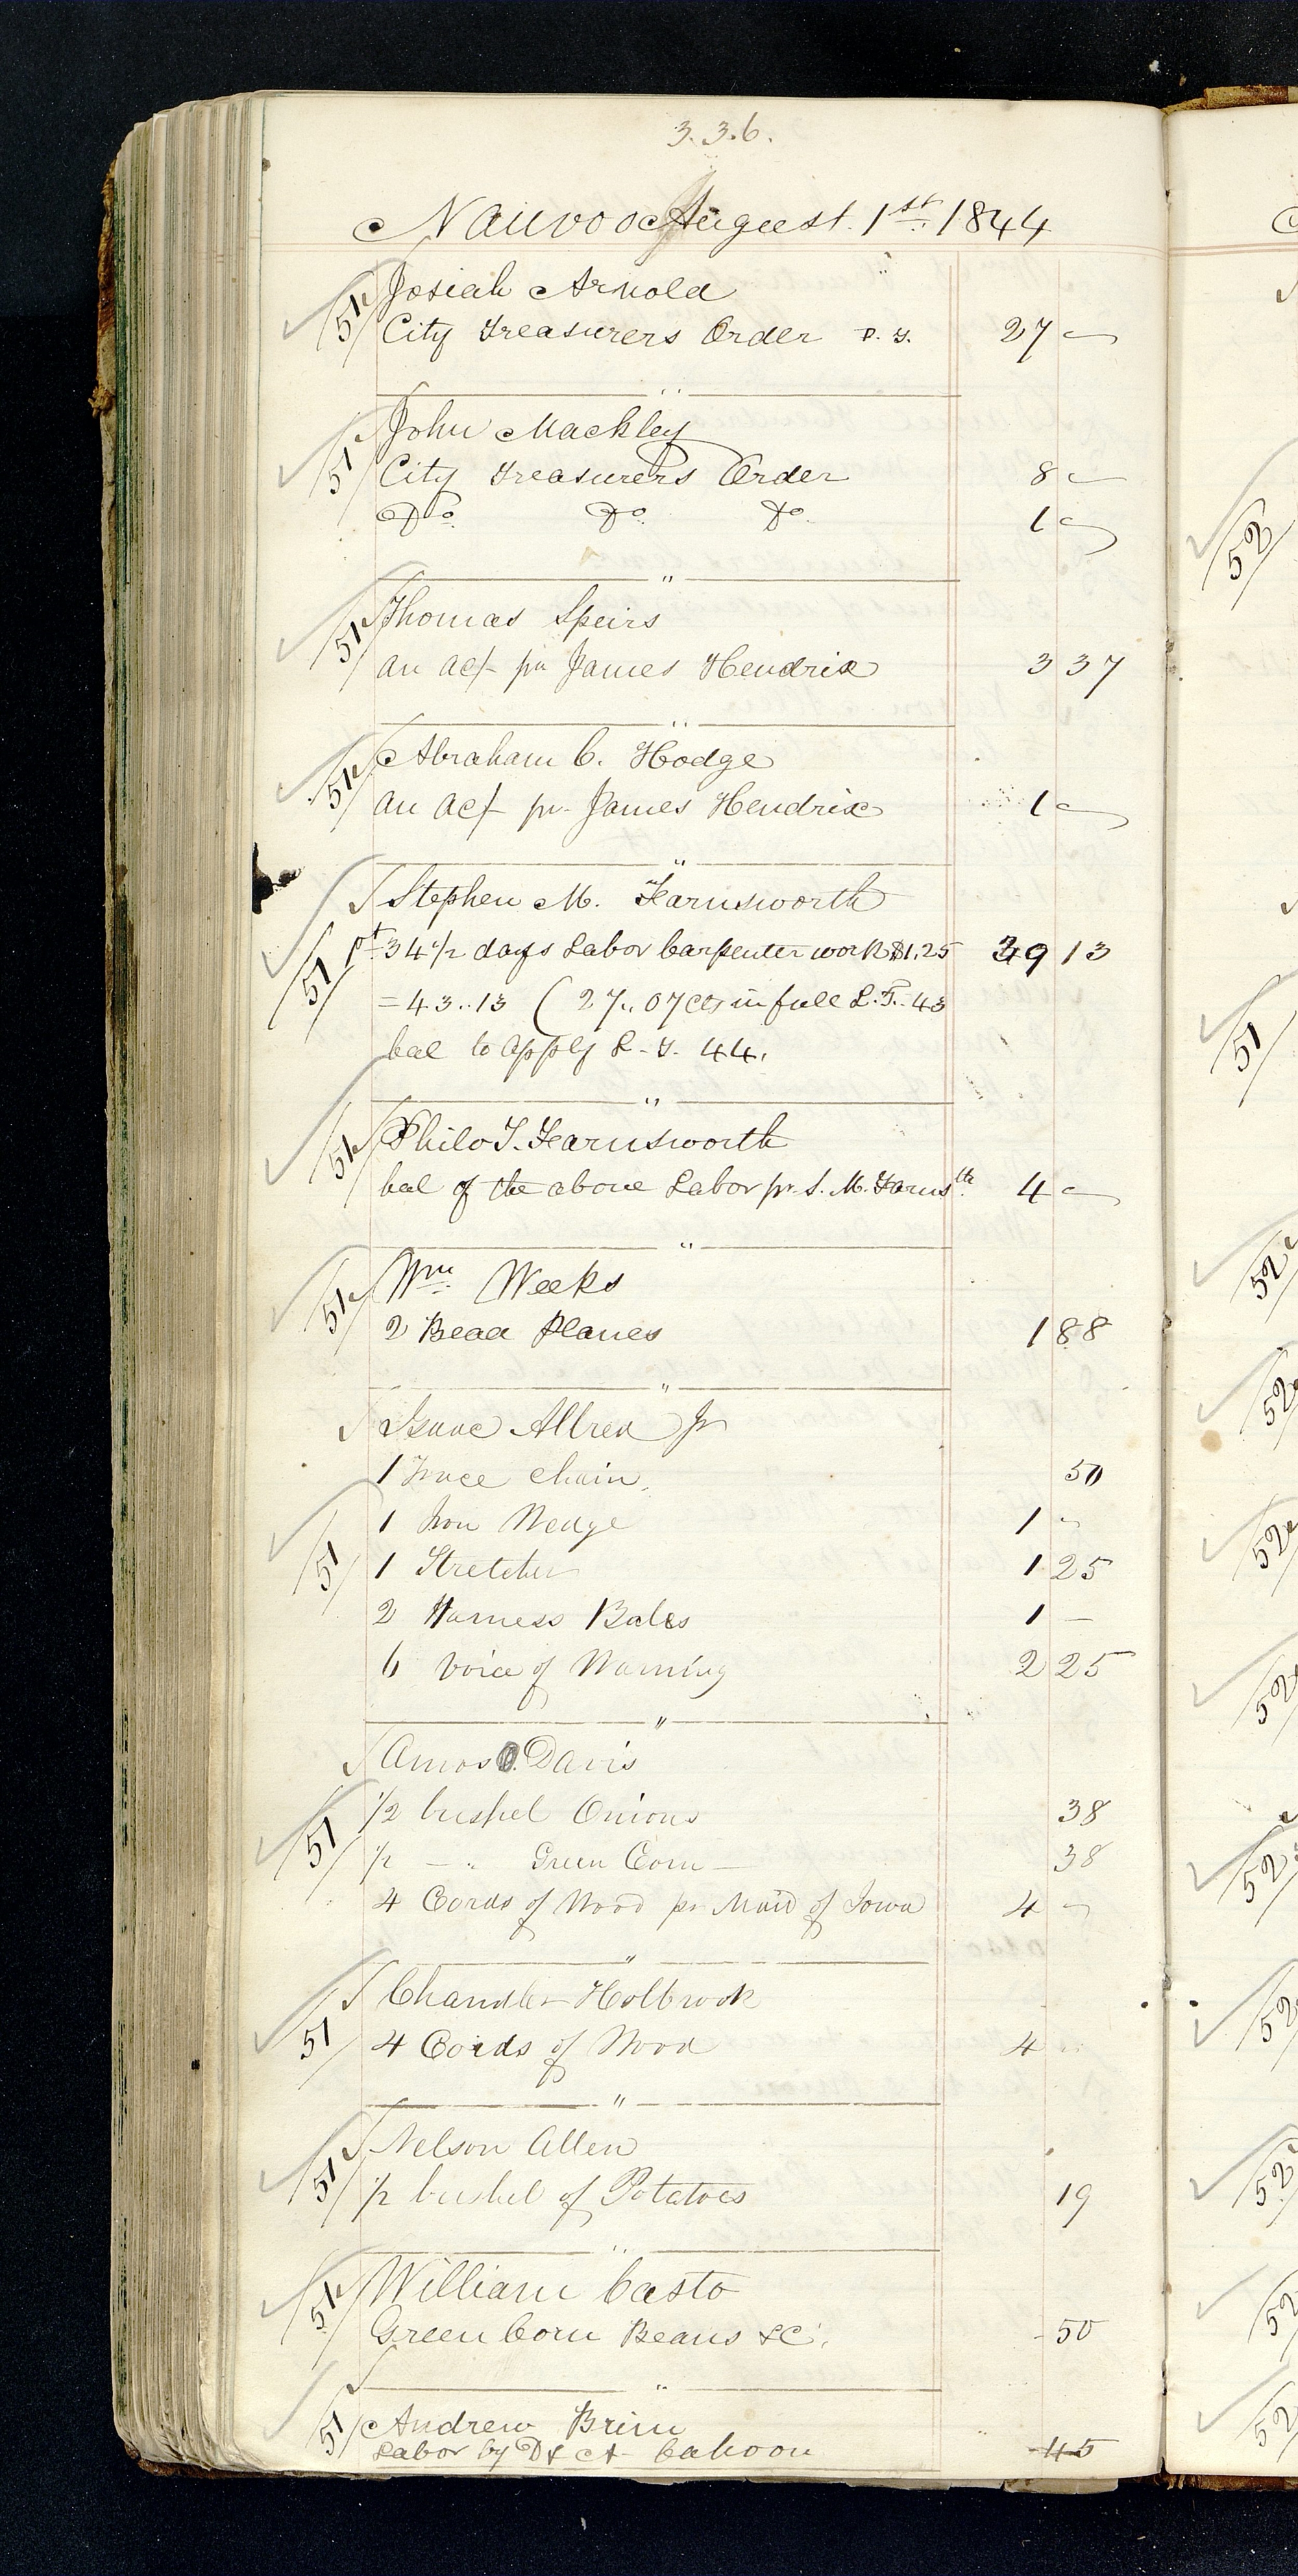 3.3.6.
Nauvoo August. 1st. 1844
51 Josiah Arnold
City Treasurers Order P. T. 27 -
"
51 John Mackley
City Treasurers Order 8 -
Do. Do. Do. 1 -
"
51 Thomas Speirs
an ac/- pr James Hendrix 3 37
"
51 Abraham C. Hodge
an ac/- pr James Hendrix 1 -
"
Stephen M. Farnsworth
51 pt 34 1/2 days Labor Carpenter work $1.25 39 13
= 43..13 ( 27,, 07 cts in full L.T. 43
bal to apply L. T. 44.
"
51 Philo T. Farnsworth
bal of the above Labor pr S. M. Farnsth. 4 -
"
51 Wm Weeks
2 Bead Planes 1 88
"
Isaac Allred Jr
1 Trace Chain, 50
1 Iron Wedge 1 -
51 1 Stretcher 1 25
2 Harness Bales 1 -
6 Voice of Warning 2 25
"
Amos Davis
51 1/2 bushel Onions 38
1/2 - " Green Corn - 38
4 Cords of Wood pr Maid of Iowa 4 -
"
Chandler Holbrook
51 4 Cords of Wood 4 "
"
51 Nelson Allen
1/2 bushel of Potatoes 19
"
51 William Casto
Green Corn Beans &C. - 50
"
51 Andrew Brim
Labor by D & A Cahoon 45
52
51
52
52
52
52
52
52
52
52
52